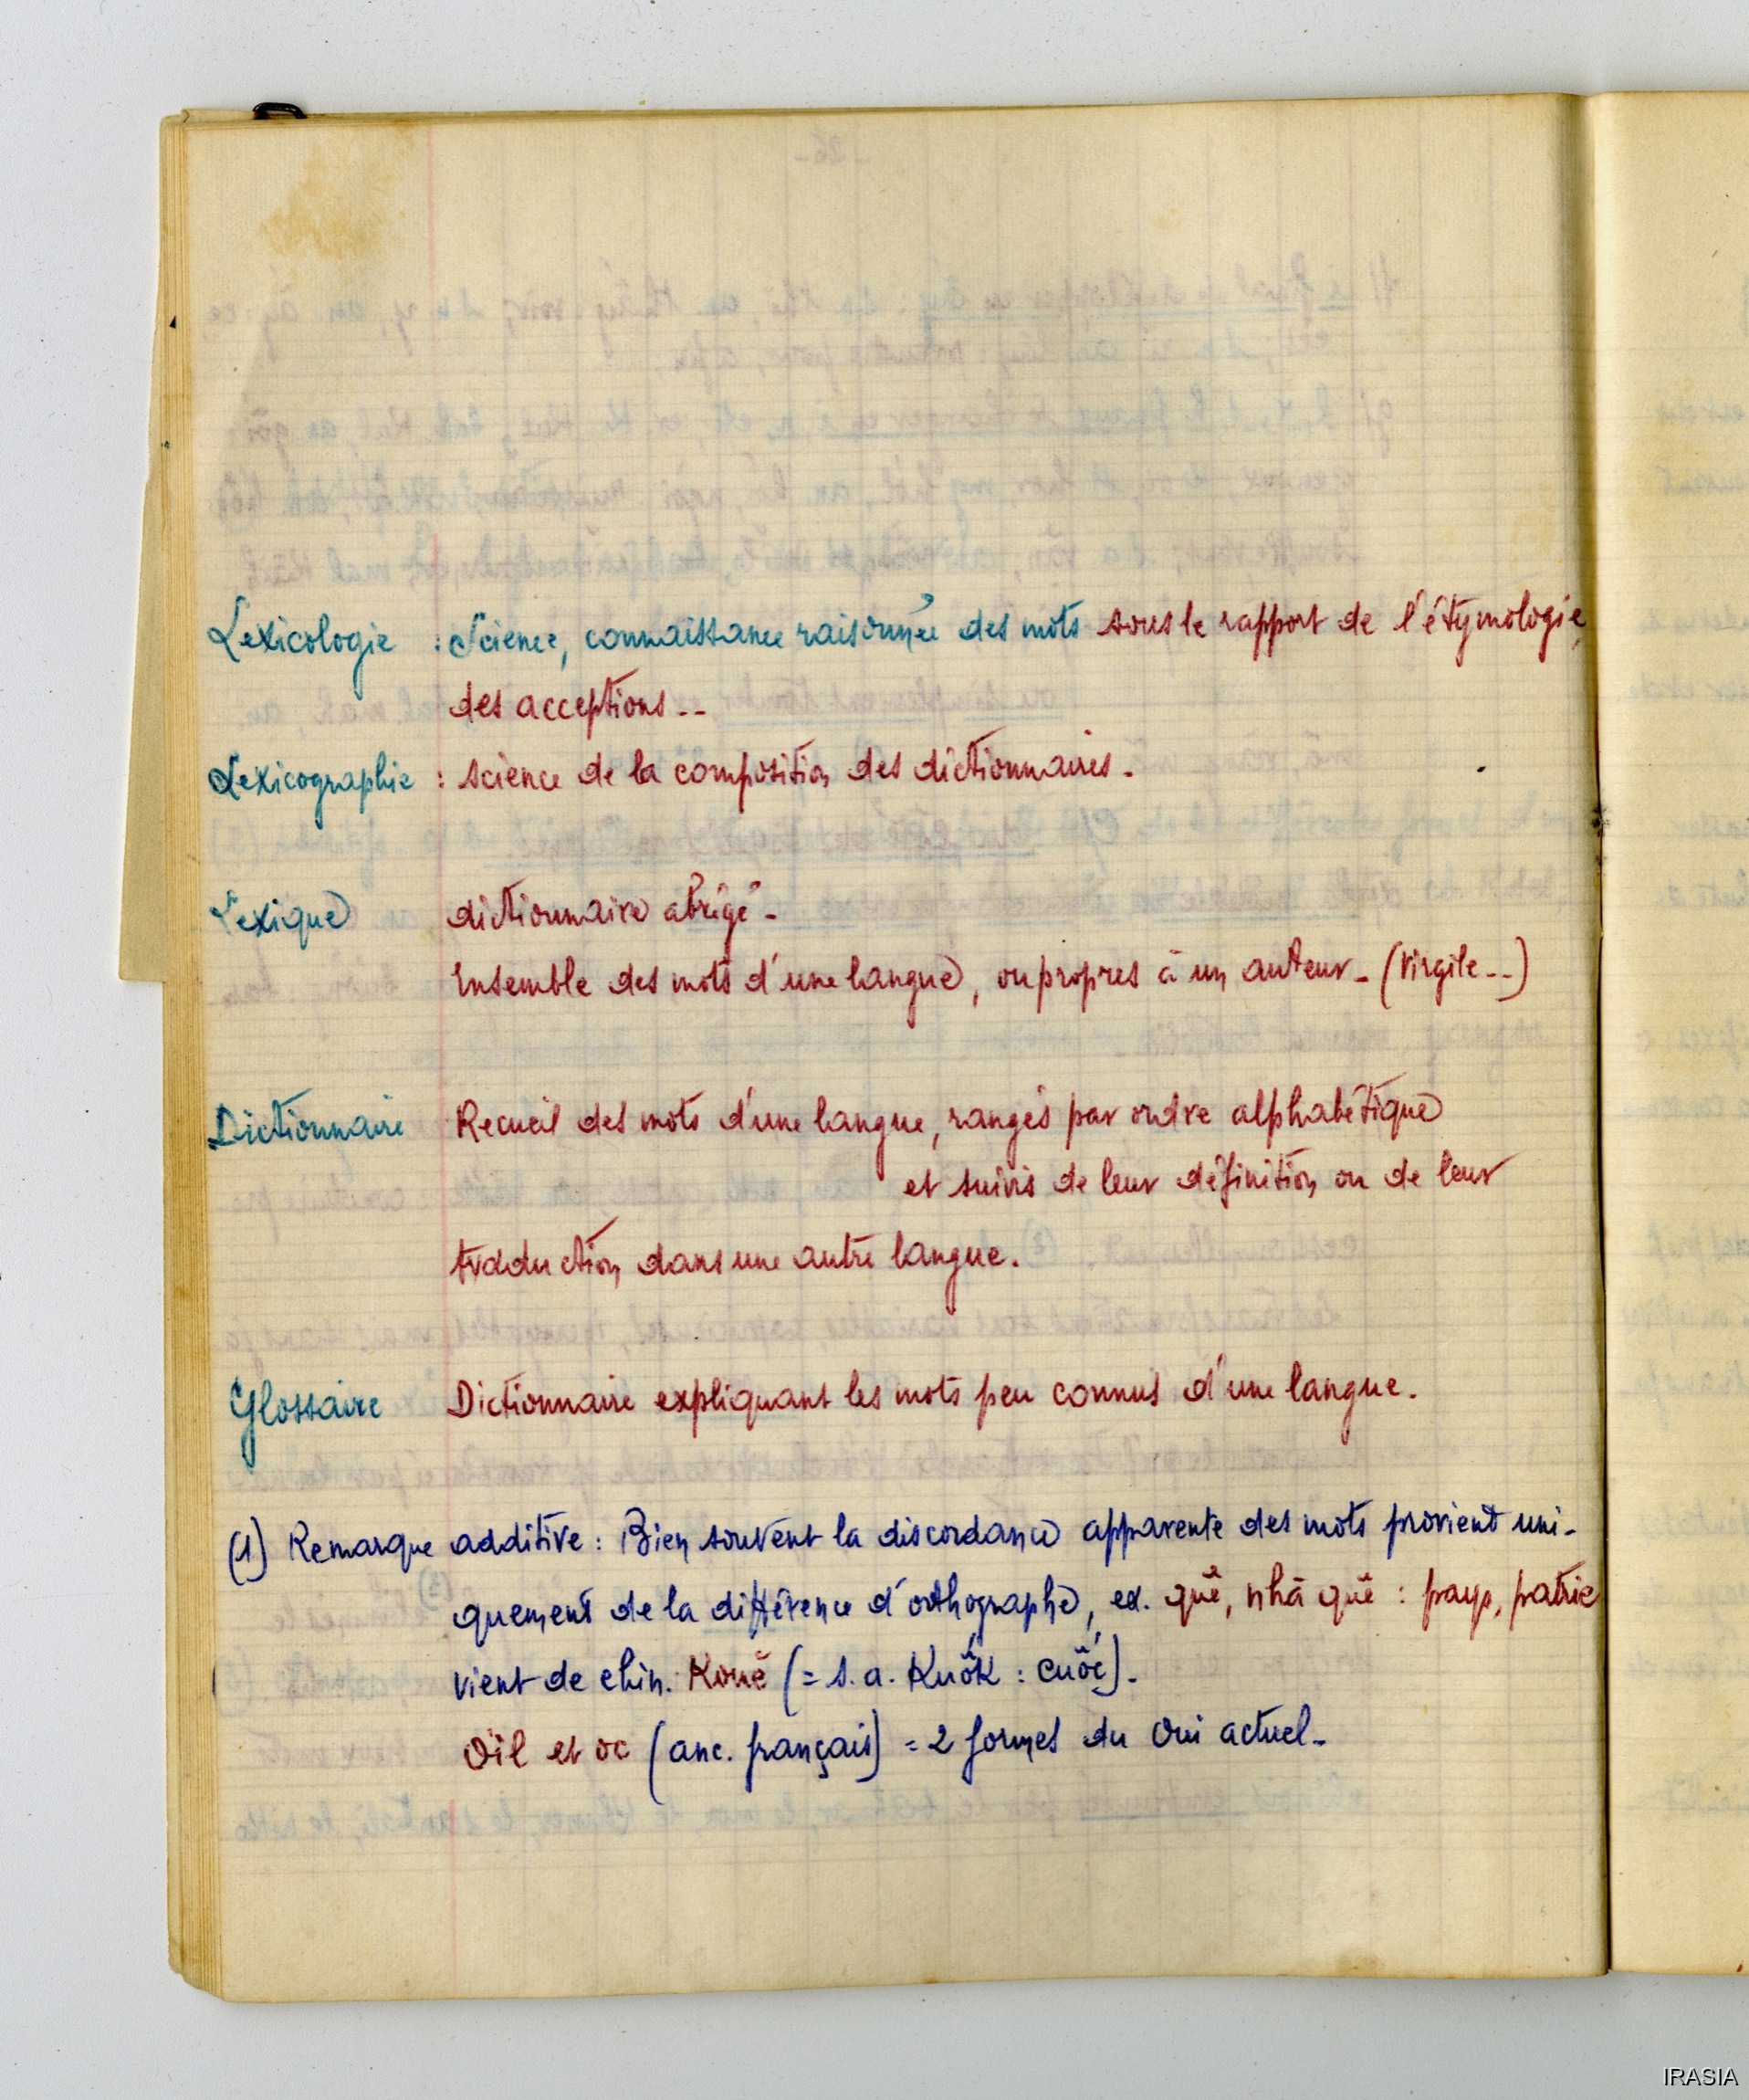 Lexicologie : Science, connaissance raisonnée des mots sous le rapport de l'étymologie,
des acceptions --
Lexicographie : science de la composition des dictionnaires.
Lexique dictionnaire abrégé -
Ensemble des mots d'une langue, ou propres à un auteur - (Virgile --)
Dictionnaire Recueil des mots d'une langue, rangés par ordre alphabétique
et suivis de leur définition ou de leur
traduction dans une autre langue.
Glossaire Dictionnaire expliquant les mots peu connus d'une langue.
(1) Remarque additive : Bien souvent la discordance apparente des mots provient uni-
quement de la différence d'orthographe, ex. quê, nhà quê : pays, patrie
vient de chin. Kouĕ (= s.a. Kuôk : cuôć).
Oïl et oc (anc. français) = 2 formes du Oui actuel -
IRASIA